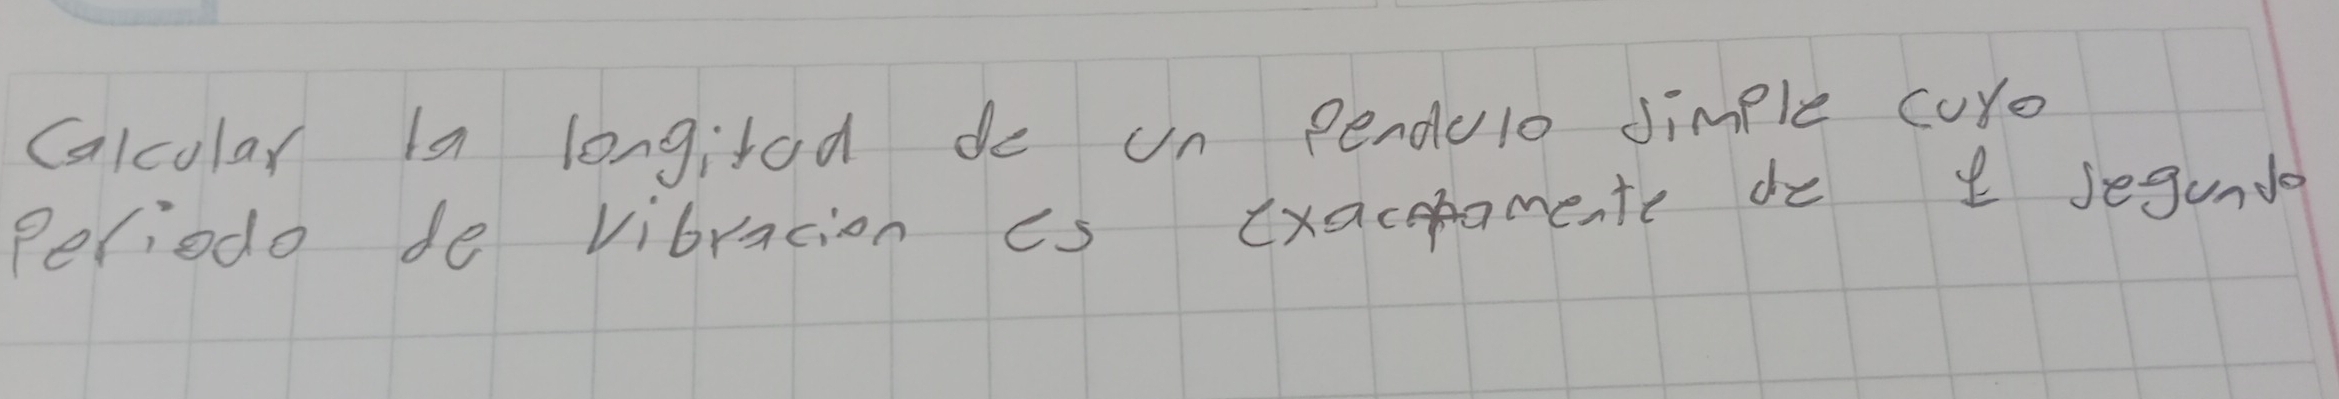 Calcular la longitud de un Pendulo simple cuyo
Periodo de vibracion es exactamente de 1 segundo